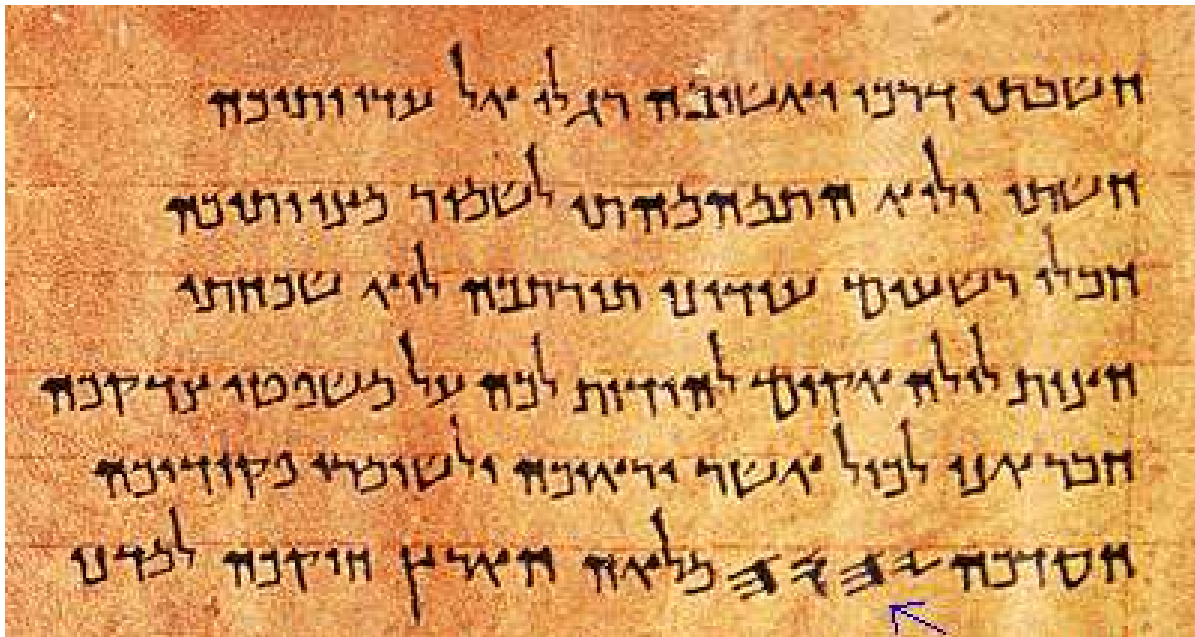 חשבתי דרכי ואשובה רגלי אל עדוותיכה
חשתי ולוא התמהמהתי לשמור מצוותיכה
חבלי רשעים עודוני תורתכה לוא שכחתי
חצות לילה אקום להודות לכה על משפטי צדקכה
חבר אני לכול אשר יראוכה ולשומרי פקודיכה
חסדכה 𐤉𐤄𐤅𐤄 מלאה הארץ חוקכה למדני